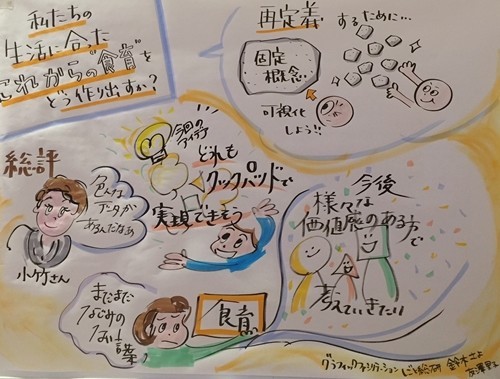 私たちの
生活に合った
これからの"食育"を
どう作り出すか?
再定義するために…
固定
概念…
可視化
しよう!!
総評
色んな
データが
あるんだなぁ
小竹さん
今回の
アイデア
どれも
クックパッドで
実現できそう
今後
様々な
価値感のある方で
考えていきたい
まだまだ
なじみの
ない言葉?
食育
グラフィックファシリテーション
鈴木さよ